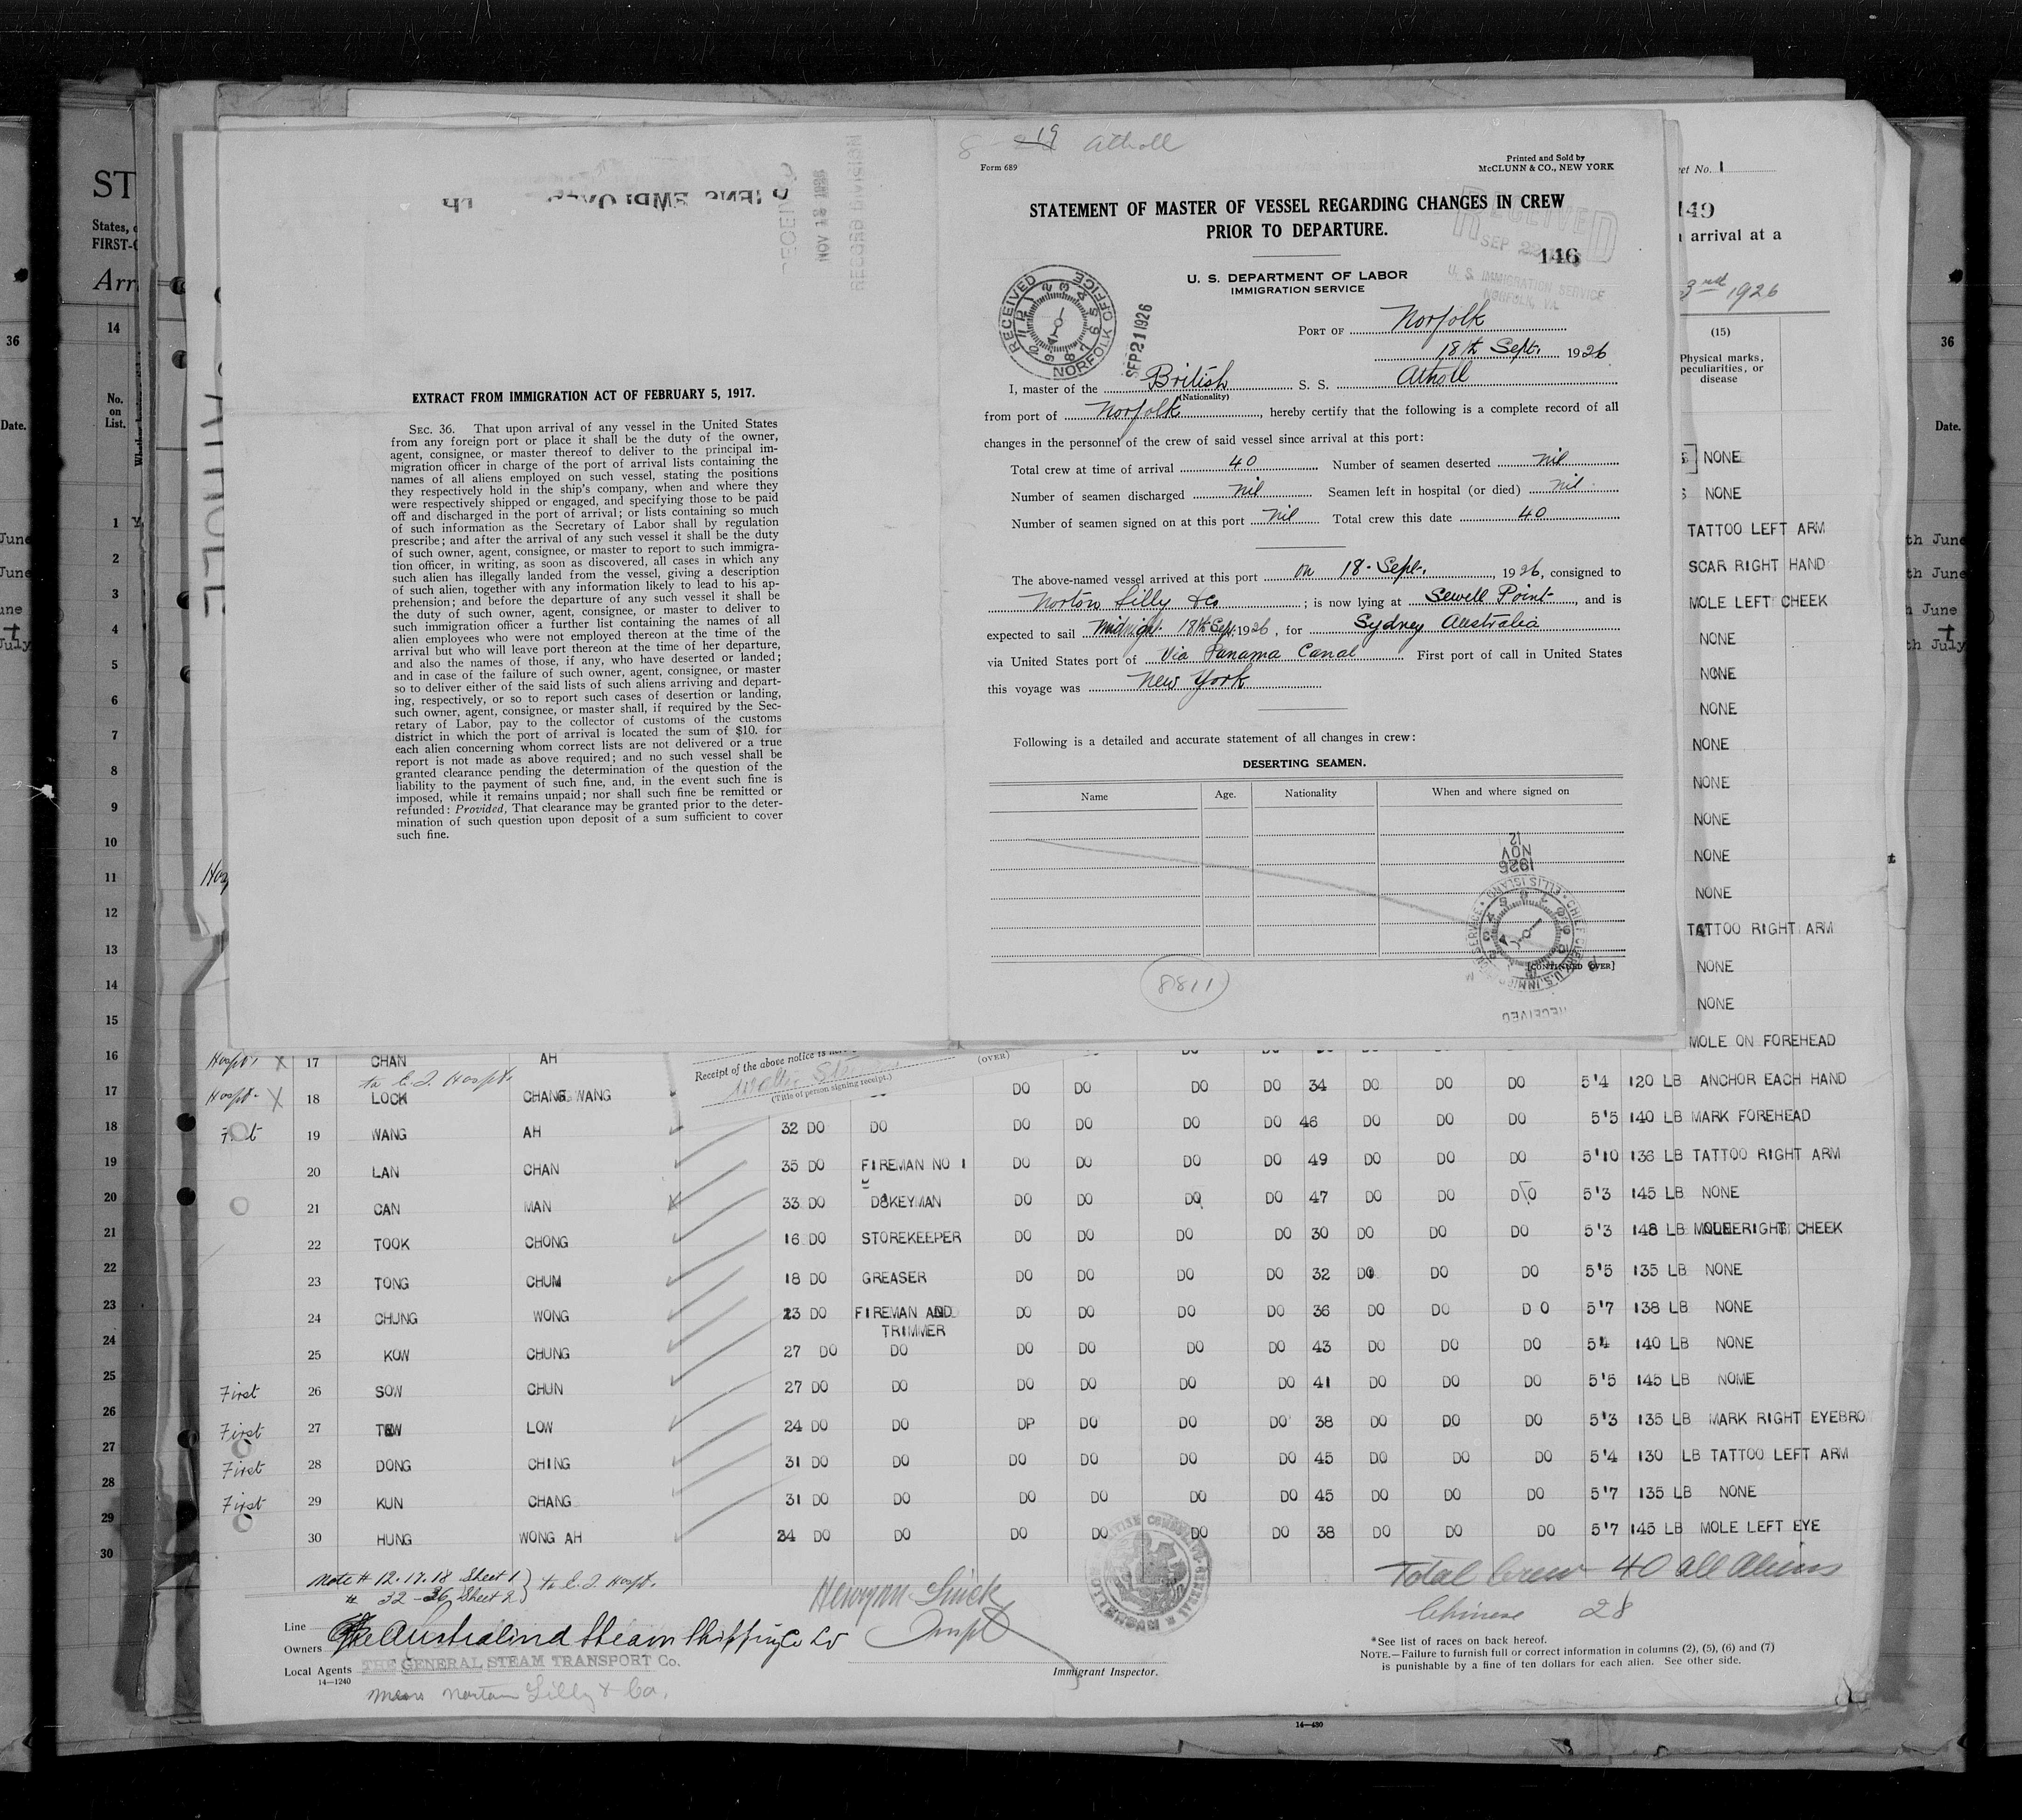 8 19 Atholl
Form 689
Printed and Sold by
McCLUNN & CO., NEW YORK
STATEMENT OF MASTER OF VESSEL REGARDING CHANGES IN CREW
PRIOR TO DEPARTURE.
RECEIVED
SEP 22
146
U. S. IMMIGRATION SERVICE
NORFOLK, VA.
U. S. DEPARTMENT OF LABOR
IMMIGRATION SERVICE
RECEIVED
NORFOLK OFFICE
SEP 21 1926
PORT OF Norfolk
18th Sept. 1926
I, master of the British S. S. Atholl
(Nationality)
from port of Norfolk, hereby certify that the following is a complete record of all
changes in the personnel of the crew of said vessel since arrival at this port:
Total crew at time of arrival 40 Number of seamen deserted nil
Number of seamen discharged nil Seamen left in hospital (or died) nil
Number of seamen signed on at this port nil Total crew this date 40
The above-named vessel arrived at this port on 18. Sept., 1926, consigned to
Norton Lilly & Co; is now lying at Sewell Point, and is
expected to sail Midnight 18th Sept. 1926, for Sydney Australia
via United States port of Via Panama Canal First port of call in United States
this voyage was New York
Following is a detailed and accurate statement of all changes in crew:
DESERTING SEAMEN.
Name Age. Nationality When and where signed on
12
NOV
1926
[CONTINUED OVER]
RECEIVED
8811
RECEIVED
NOV 13 1936
RECORD DIVISION
EXTRACT FROM IMMIGRATION ACT OF FEBRUARY 5, 1917.
SEC. 36. That upon arrival of any vessel in the United States
from any foreign port or place it shall be the duty of the owner,
agent, consignee, or master thereof to deliver to the principal im-
migration officer in charge of the port of arrival lists containing the
names of all aliens employed on such vessel, stating the positions
they respectively hold in the ship's company, when and where they
were respectively shipped or engaged, and specifying those to be paid
off and discharged in the port of arrival; or lists containing so much
of such information as the Secretary of Labor shall by regulation
prescribe; and after the arrival of any such vessel it shall be the duty
of such owner, agent, consignee, or master to report to such immigra-
tion officer, in writing, as soon as discovered, all cases in which any
such alien has illegally landed from the vessel, giving a description
of such alien, together with any information likely to lead to his ap-
prehension; and before the departure of any such vessel it shall be
the duty of such owner, agent, consignee, or master to deliver to
such immigration officer a further list containing the names of all
alien employees who were not employed thereon at the time of the
arrival but who will leave port thereon at the time of her departure,
and also the names of those, if any, who have deserted or landed;
and in case of the failure of such owner, agent, consignee, or master
so to deliver either of the said lists of such aliens arriving and depart-
ing, respectively, or so to report such cases of desertion or landing,
such owner, agent, consignee, or master shall, if required by the Sec-
retary of Labor, pay to the collector of customs of the customs
district in which the port of arrival is located the sum of $10. for
each alien concerning whom correct lists are not delivered or a true
report is not made as above required; and no such vessel shall be
granted clearance pending the determination of the question of the
liability to the payment of such fine, and, in the event such fine is
imposed, while it remains unpaid; nor shall such fine be remitted or
refunded: Provided, That clearance may be granted prior to the deter-
mination of such question upon deposit of a sum sufficient to cover
such fine.
ST
States,
FIRST-
Arr
No.
on
List.
36
Date.
14
1
2
3
4
5
6
7
8
9
10
11
12
13
14
15
16
17
18
19
20
21
22
23
24
25
26
27
28
29
30
et No. 1
149
arrival at a
3rd 1926
(15)
Physical marks,
peculiarities, or
disease
NONE
NONE
TATTOO LEFT ARM
SCAR RIGHT HAND
MOLE LEFT CHEEK
NONE
NONE
NONE
NONE
NONE
NONE
NONE
NONE
TATTOO RIGHT ARM
NONE
NONE
MOLE ON FOREHEAD
36
Date.
th June
th June
June
th July
Receipt of the above notice is
(OVER)
(Title of person signing receipt.)
Hospt. X 17 CHAN AH
to E. I. Hospt.
Hospt. X 18 LOCK CHANG WANG DO DO DO DO 34 DO DO DO 5'4 120 LB ANCHOR EACH HAND
First 19 WANG AH 32 DO DO DO DO DO DO 46 DO DO DO 5'5 140 LB MARK FOREHEAD
20 LAN CHAN 35 DO FIREMAN NO 1 DO DO DO DO 49 DO DO DO 5'10 136 LB TATTOO RIGHT ARM
21 CAN MAN 33 DO DOKEYMAN DO DO DO DO 47 DO DO DO 5'3 145 LB NONE
22 TOOK CHONG 16 DO STOREKEEPER DO DO DO DO 30 DO DO DO 5'3 148 LB MOLE RIGHT CHEEK
23 TONG CHUM 18 DO GREASER DO DO DO DO 32 DO DO DO 5'5 135 LB NONE
24 CHUNG WONG 23 DO FIREMAN AND DO DO DO DO 36 DO DO DO 5'7 138 LB NONE
TRIMMER
25 KOW CHUNG 27 DO DO DO DO DO DO 43 DO DO DO 5'4 140 LB NONE
First 26 SOW CHUN 27 DO DO DO DO DO DO 41 DO DO DO 5'5 145 LB NOME
First 27 TEW LOW 24 DO DO DP DO DO DO 38 DO DO DO 5'3 135 LB MARK RIGHT EYEBRO
First 28 DONG CHING 31 DO DO DO DO DO DO 45 DO DO DO 5'4 130 LB TATTOO LEFT ARM
First 29 KUN CHANG 31 DO DO DO DO DO DO 45 DO DO DO 5'7 135 LB NONE
30 HUNG WONG AH 24 DO DO DO DO DO DO 38 DO DO DO 5'7 145 LB MOLE LEFT EYE
Note # 12.17.18 Sheet 1 } to E. I. Hospt.
# 32-36 Sheet 2
Total Crew 40 all Aliens
Chinese 28
Line
Owners The Australind Steam Shipping Co Ld
Local Agents THE GENERAL STEAM TRANSPORT Co.
14—1240
Messrs Norton Lilly & Co.
Immigrant Inspector.
*See list of races on back hereof.
NOTE.—Failure to furnish full or correct information in columns (2), (5), (6) and (7)
is punishable by a fine of ten dollars for each alien. See other side.
14—430